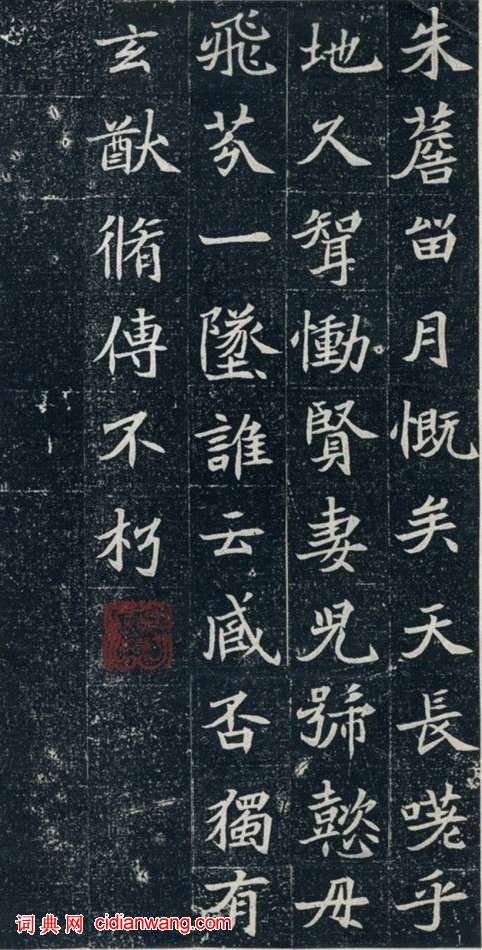 朱薝畄月慨矣天長嗟乎
地久聟慟賢妻兒號懿母
飛芬一墜誰云臧否獨有
玄猷脩傳不朽
词典网 cidianwang.com